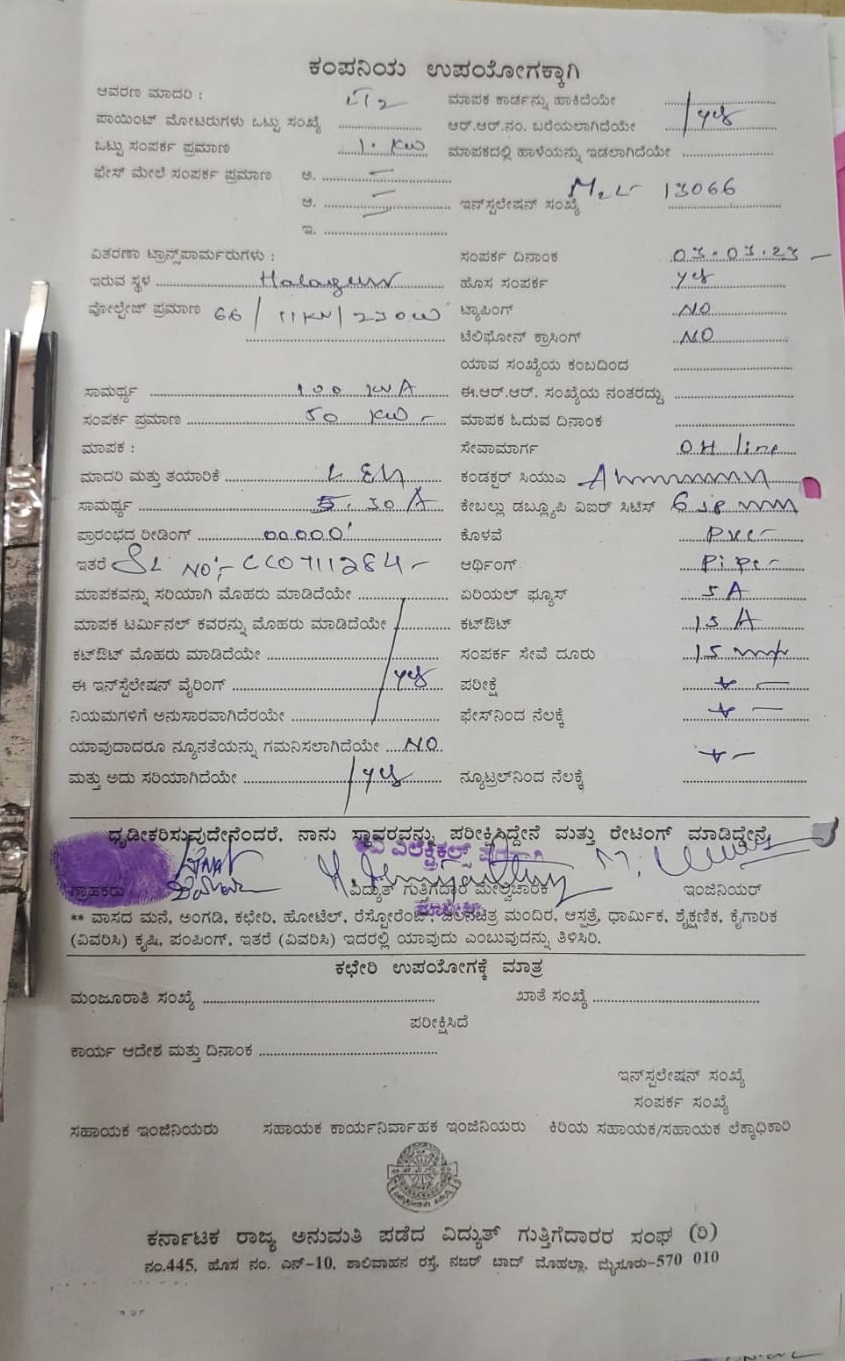 ಕಂಪನಿಯ ಉಪಯೋಗಕ್ಕಾಗಿ
ಆವರಣ ಮಾದರಿ : LT2 ಮಾಪಕ ಕಾರ್ಡನ್ನು ಹಾಕಿದೆಯೇ
ಪಾಯಿಂಟ್ ಮೋಟರುಗಳು ಒಟ್ಟು ಸಂಖ್ಯೆ ಆರ್.ಆರ್.ನಂ. ಬರೆಯಲಾಗಿದೆಯೇ yes
ಒಟ್ಟು ಸಂಪರ್ಕ ಪ್ರಮಾಣ 1. KW ಮಾಪಕದಲ್ಲಿ ಹಾಳೆಯನ್ನು ಇಡಲಾಗಿದೆಯೇ
ಫೇಸ್ ಮೇಲೆ ಸಂಪರ್ಕ ಪ್ರಮಾಣ ಅ.
ಆ. ಇನ್‌ಸ್ಟಲೇಷನ್ ಸಂಖ್ಯೆ 13066
ಇ.
ವಿತರಣಾ ಟ್ರಾನ್ಸ್‌ಪಾರ್ಮರುಗಳು : ಸಂಪರ್ಕ ದಿನಾಂಕ 03.03.23
ಇರುವ ಸ್ಥಳ ಹೊಸ ಸಂಪರ್ಕ yes
ವೋಲ್ಟೇಜ್ ಪ್ರಮಾಣ 66 / 11KV / 230 ಟ್ಯಾಪಿಂಗ್ NO
ಟೆಲಿಫೋನ್ ಕ್ರಾಸಿಂಗ್ NO
ಯಾವ ಸಂಖ್ಯೆಯ ಕಂಬದಿಂದ
ಸಾಮರ್ಥ್ಯ 100 KVA ಈ.ಆರ್.ಆರ್. ಸಂಖ್ಯೆಯ ನಂತರದ್ದು
ಸಂಪರ್ಕ ಪ್ರಮಾಣ 50 KW ಮಾಪಕ ಓದುವ ದಿನಾಂಕ
ಮಾಪಕ : ಸೇವಾಮಾರ್ಗ OH line
ಮಾದರಿ ಮತ್ತು ತಯಾರಿಕೆ ಕಂಡಕ್ಟರ್ ಸಿಯುಎ
ಸಾಮರ್ಥ್ಯ 5.30A ಕೇಬಲ್ಲು ಡಬ್ಲ್ಯೂಪಿ ವಿಐಆರ್ ಸಿಟಿಸ್ 6
ಪ್ರಾರಂಭದ ರೀಡಿಂಗ್ 00000 ಕೊಳವೆ PVC
ಇತರೆ SL NO:- CC0711284 ಆರ್ಥಿಂಗ್ Pipe
ಮಾಪಕವನ್ನು ಸರಿಯಾಗಿ ಮೊಹರು ಮಾಡಿದೆಯೇ ಏರಿಯಲ್ ಫ್ಯೂಸ್ 5 A
ಮಾಪಕ ಟರ್ಮಿನಲ್ ಕವರನ್ನು ಮೊಹರು ಮಾಡಿದೆಯೇ ಕಟ್‌ಔಟ್ 15 A
ಕಟ್‌ಔಟ್ ಮೊಹರು ಮಾಡಿದೆಯೇ ಸಂಪರ್ಕ ಸೇವೆ ದೂರು 15
ಈ ಇನ್‌ಸ್ಟೆಲೇಷನ್ ವೈರಿಂಗ್ yes ಪರೀಕ್ಷೆ
ನಿಯಮಗಳಿಗೆ ಅನುಸಾರವಾಗಿದೆರಯೇ ಫೇಸ್‌ನಿಂದ ನೆಲಕ್ಕೆ
ಯಾವುದಾದರೂ ನ್ಯೂನತೆಯನ್ನು ಗಮನಿಸಲಾಗಿದೆಯೇ NO
ಮತ್ತು ಅದು ಸರಿಯಾಗಿದೆಯೇ yes ನ್ಯೂಟ್ರಲ್‌ನಿಂದ ನೆಲಕ್ಕೆ
ಧೃಡೀಕರಿಸುವುದೇನೆಂದರೆ, ನಾನು ಸ್ಥಾವರವನ್ನು ಪರೀಕ್ಷಿಸಿದ್ದೇನೆ ಮತ್ತು ರೇಟಿಂಗ್ ಮಾಡಿದ್ದೇನೆ
ಗ್ರಾಹಕರು ವಿದ್ಯುತ್ ಗುತ್ತಿಗೆದಾರ ಮೇಲ್ವಿಚಾರಕ ಇಂಜಿನಿಯರ್
** ವಾಸದ ಮನೆ, ಅಂಗಡಿ, ಕಛೇರಿ, ಹೋಟೆಲ್, ರೆಸ್ಟೋರೆಂಟ್, ಚಲನಚಿತ್ರ ಮಂದಿರ, ಆಸ್ಪತ್ರೆ, ಧಾರ್ಮಿಕ, ಶೈಕ್ಷಣಿಕ, ಕೈಗಾರಿಕ
(ವಿವರಿಸಿ) ಕೃಷಿ, ಪಂಪಿಂಗ್, ಇತರೆ (ವಿವರಿಸಿ) ಇದರಲ್ಲಿ ಯಾವುದು ಎಂಬುವುದನ್ನು ತಿಳಿಸಿರಿ.
ಕಛೇರಿ ಉಪಯೋಗಕ್ಕೆ ಮಾತ್ರ
ಮಂಜೂರಾತಿ ಸಂಖ್ಯೆ ಖಾತೆ ಸಂಖ್ಯೆ
ಪರೀಕ್ಷಿಸಿದೆ
ಕಾರ್ಯ ಆದೇಶ ಮತ್ತು ದಿನಾಂಕ
ಇನ್‌ಸ್ಟಲೇಷನ್ ಸಂಖ್ಯೆ
ಸಂಪರ್ಕ ಸಂಖ್ಯೆ
ಸಹಾಯಕ ಇಂಜಿನಿಯರು ಸಹಾಯಕ ಕಾರ್ಯನಿರ್ವಾಹಕ ಇಂಜಿನಿಯರು ಕಿರಿಯ ಸಹಾಯಕ/ಸಹಾಯಕ ಲೆಕ್ಕಾಧಿಕಾರಿ
ಕರ್ನಾಟಕ ರಾಜ್ಯ ಅನುಮತಿ ಪಡೆದ ವಿದ್ಯುತ್ ಗುತ್ತಿಗೆದಾರರ ಸಂಘ (ರಿ)
ನಂ.445, ಹೊಸ ನಂ. ಎನ್-10, ಶಾಲಿವಾಹನ ರಸ್ತೆ, ನಜರ್ ಬಾದ್ ಮೊಹಲ್ಲಾ, ಮೈಸೂರು-570 010